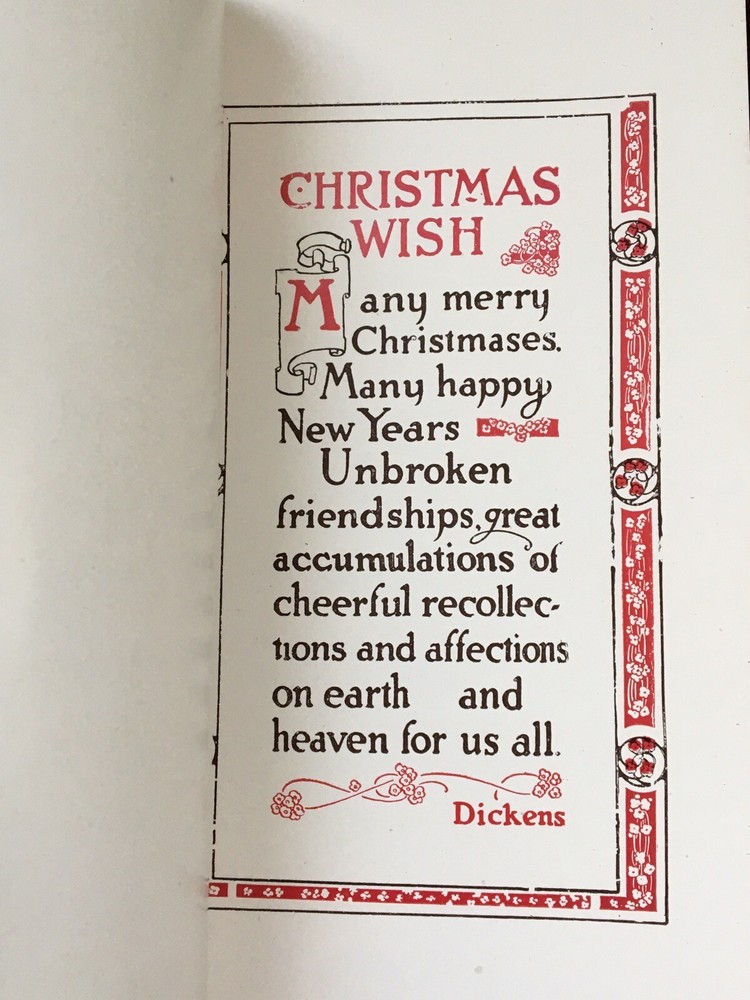 CHRISTMAS
WISH
Many merry
Christmases.
Many happy
New Years
Unbroken
friendships, great
accumulations of
cheerful recollec-
tions and affections
on earth and
heaven for us all.
Dickens